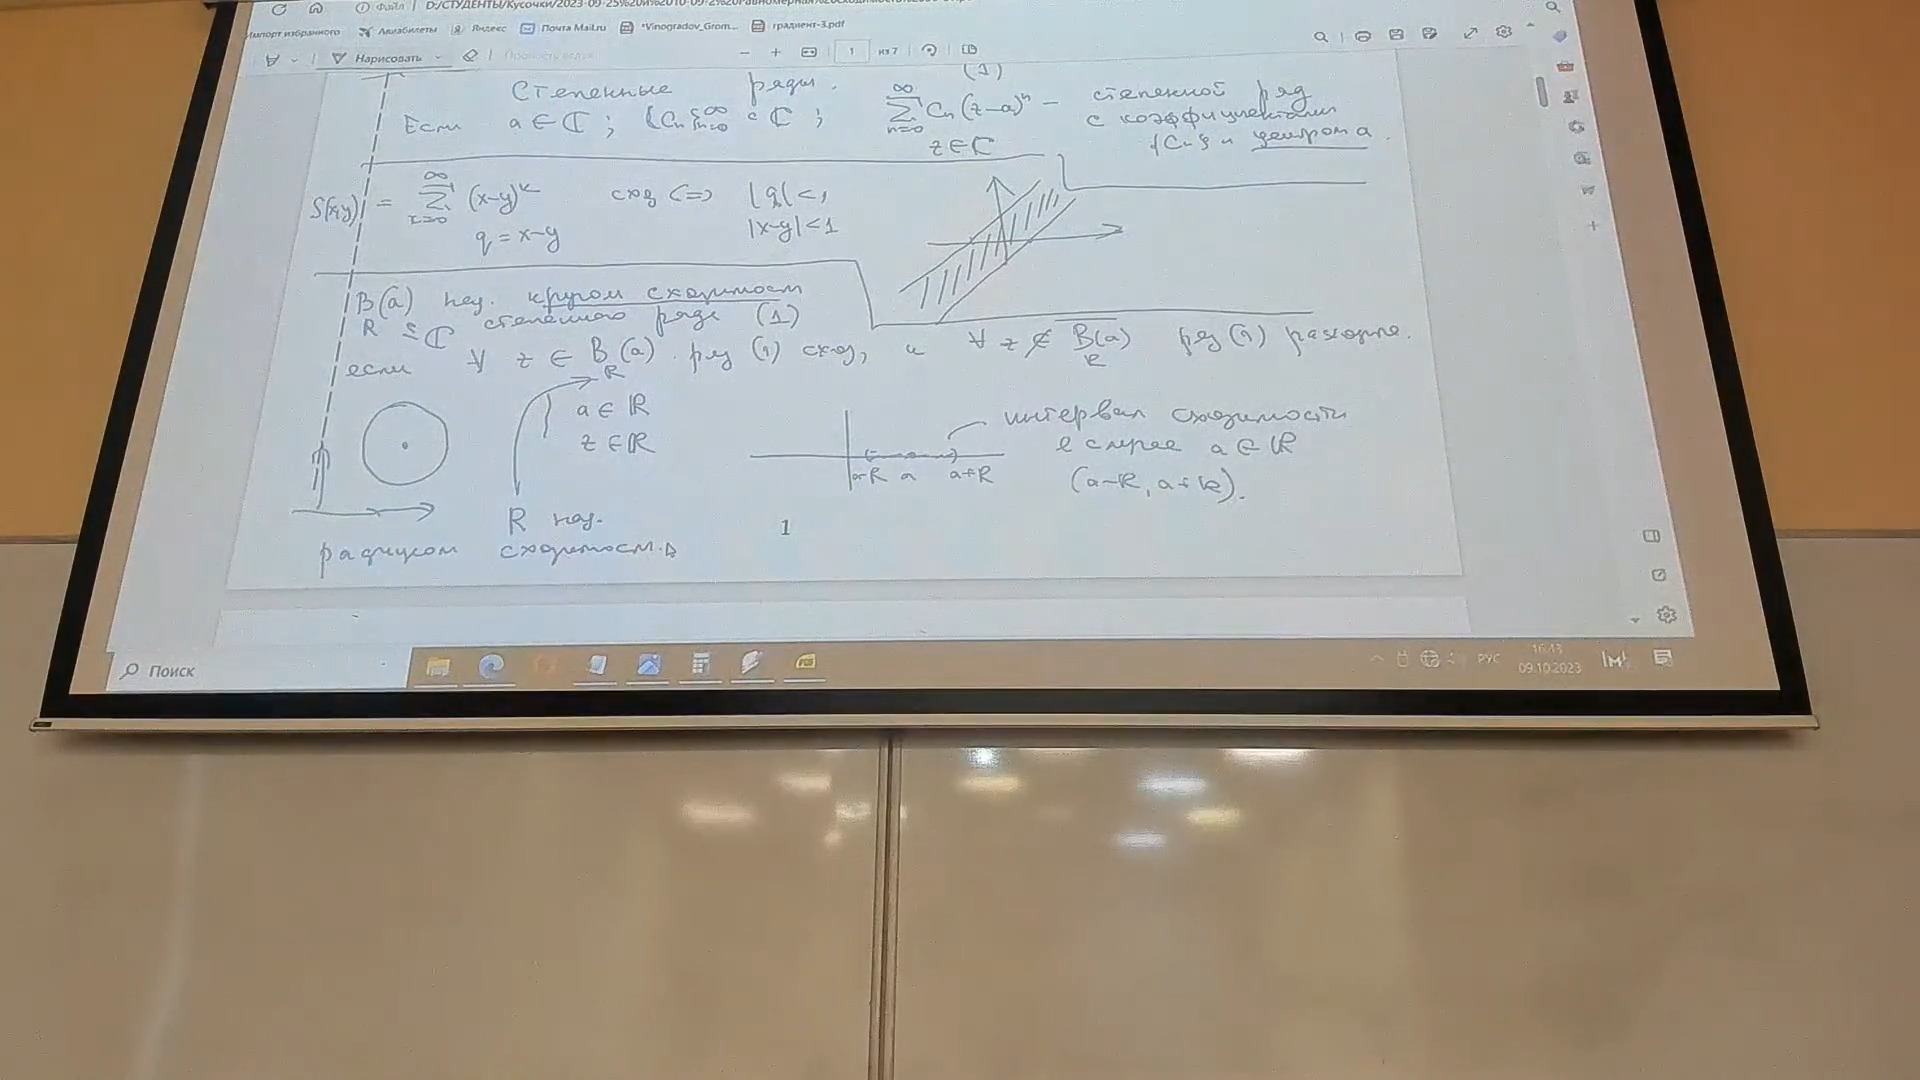 Файл
D:/СТУДЕНТЫ/Кусочки/2023-09-25%20и%2010-09-2%20равномерная%20сходимость
импорт избранного Авиабилеты Яндекс Почта Mail.ru *Vinogradov_Grom... градиент-3.pdf
Нарисовать 1 из 7
Степенные ряды. (1)
Если a ∈ ℂ ; {Cn}_{n=0}^∞ ⊂ ℂ ; \sum_{n=0}^∞ Cn (z-a)^n — степенной ряд
z ∈ ℂ с коэффициентами
{Cn} и центром a.
S(x,y) = \sum_{k=0}^∞ (x-y)^k сход (=) |q| < 1
q = x-y |x-y| < 1
B_R(a) наз. кругом сходимост
⊆ ℂ степенного ряда (1)
если ∀ z ∈ B_R(a) ряд (1) сход, и ∀ z ∉ \overline{B_R(a)} ряд (1) расходится.
a ∈ ℝ
z ∈ ℝ
интервал сходимости
в случае a ∈ ℝ
a-R a a+R
(a-R, a+R).
R наз.
радиусом сходимост.
1
Поиск
РУС 16:43
09.10.2023